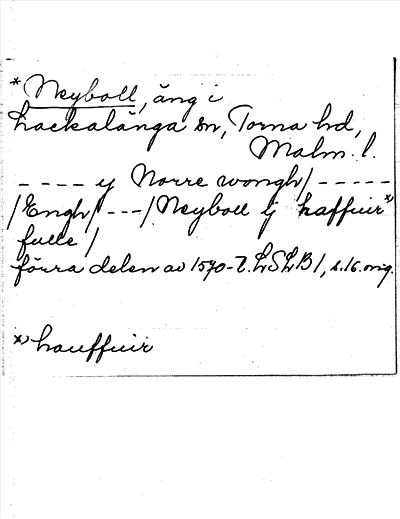 * Neyboll, äng i
Lackalänga sn, Torna hd,
Malm. l.
---- y Norre wongh/-----
/Engh/ ---/Neyboll ij haffuir*)
fulle/
förra delen av 1570-t. LSLB 1, s.16. orig.
*) hauffuir